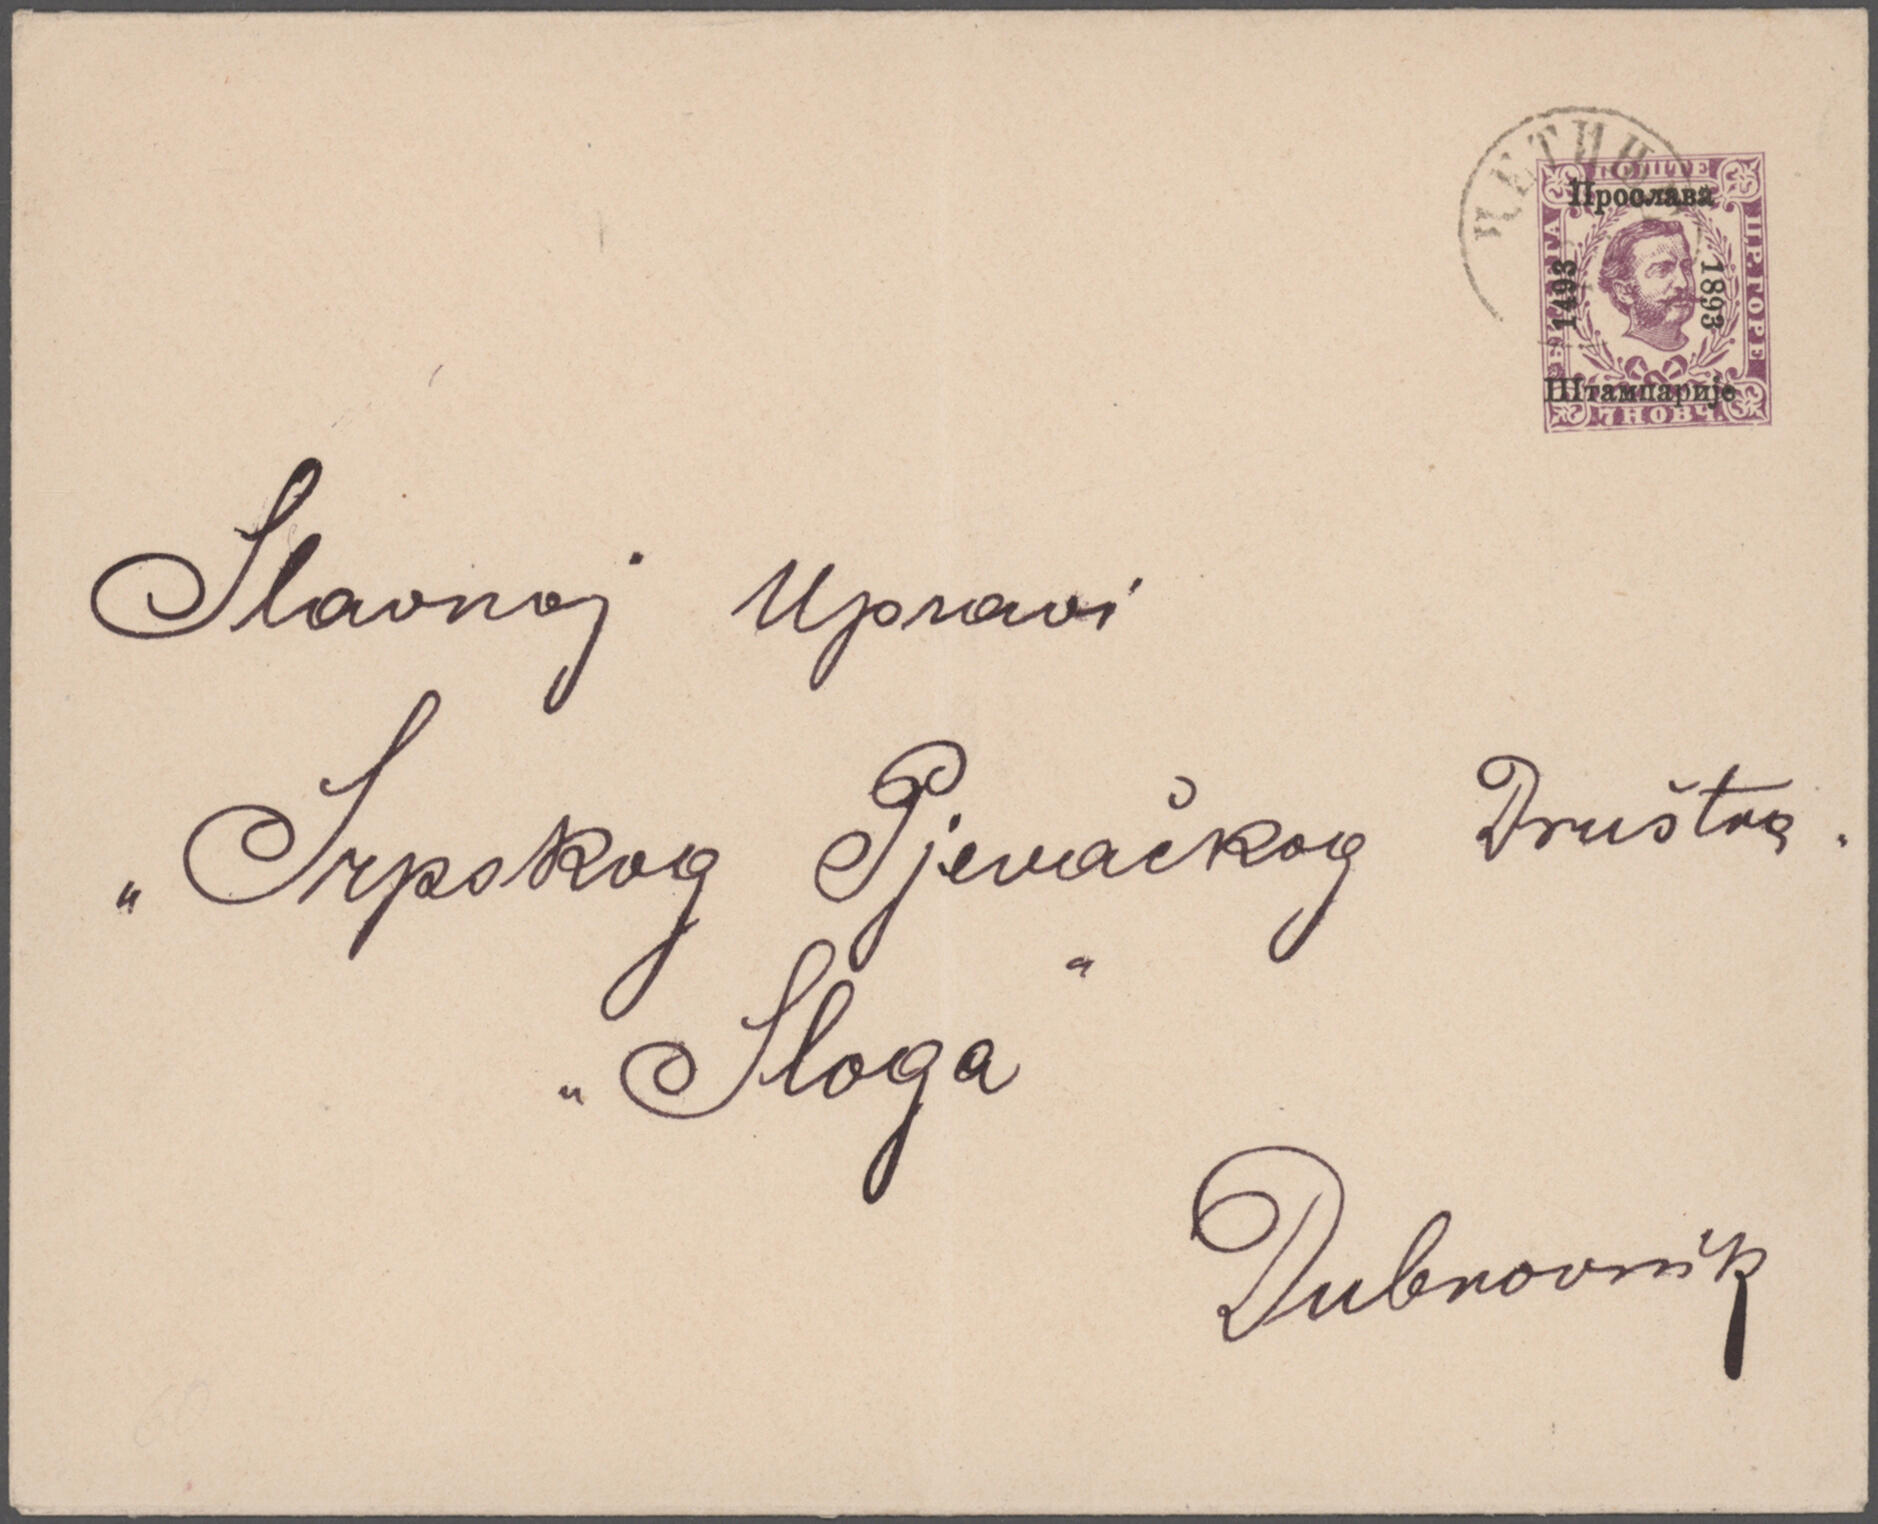 ЦЕТИЊЕ
ПОШТЕ
Прослава
БИЉЕГА
1493
1893
ЦР. ГОРЕ
Штампарије
7 НОВЧ.
Slavnoj Upravi
„Srpskog Pjevačkog Društva.
„Sloga“
Dubrovnik